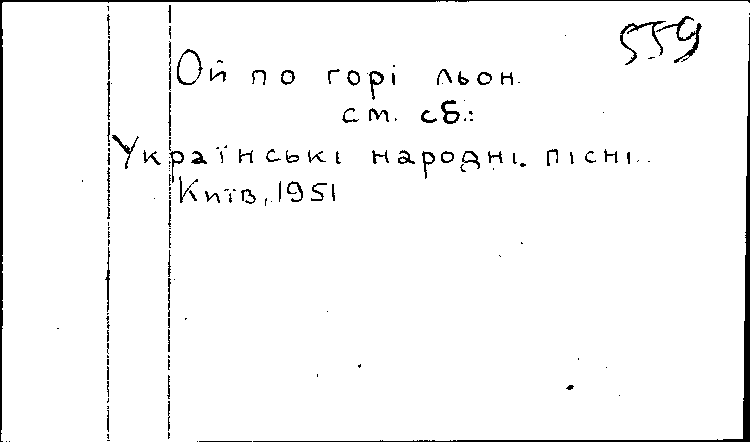 559
Ой по горі льон.
ст. сб.:
Українські народні. пісні.
Київ, 1951